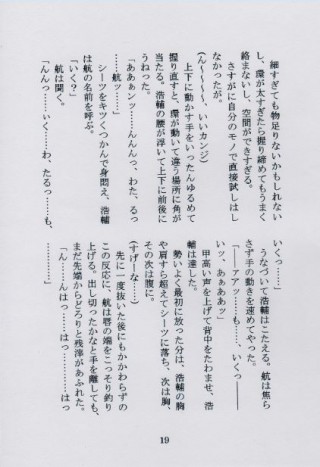 細すぎても物足りないかもしれない
し、環が太すぎたら握り締めてもうまく
絡まないし、空間ができすぎる。
さすがに自分のモノで直接試しはし
なかったが。
(ん～～～～、いいカンジ)
上下に動かす手をいったんゆるめて
握り直すと、環が動いて違う場所に角が
当たる。浩輔の腰が浮いて上下に前後に
うねった。
「ああぁンッ……んんんっ、わた、るっ
……航ッ……」
シーツをキツくつかんで身悶え、浩輔
は航の名前を呼ぶ。
「いく?」
航は聞く。
「んんっ……ぃく……わ、たるっ……も、
いくっ…」
うなづいて浩輔はこたえる。航は焦ら
さず手の動きを速めてやった。
「――ァアッ……も……、いくっ――
いッ、あぁあぁッ」
甲高い声を上げて背中をたわませ、浩
輔は達した。
勢いよく最初に放った分は、浩輔の胸
や肩すら超えてシーツに落ち、次は胸、
その次は腹に。
(すげーな……)
先に一度抜いた後にもかかわらずの
この反応に、航は唇の端をこっそり釣り
上げる。出し切ったかなと手を離しても、
まだ先端からどろりと残滓があふれた。
「ん……んはっ……はっ……はっ……はっ
…………」
19